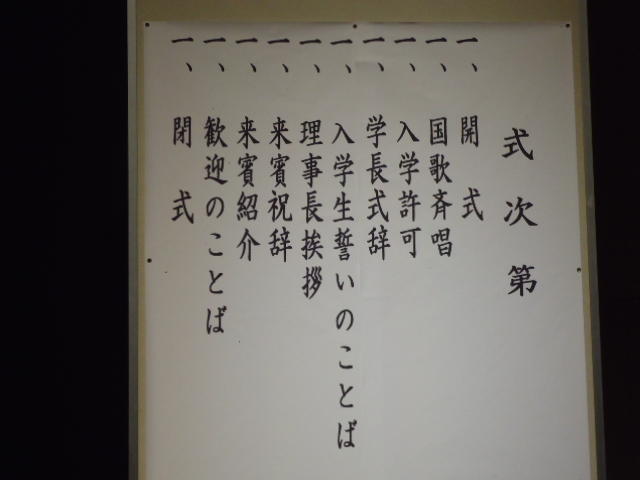 式次第
一、開式
一、国歌斉唱
一、入学許可
一、学長式辞
一、入学生誓いのことば
一、理事長挨拶
一、来賓祝辞
一、来賓紹介
一、歓迎のことば
一、閉式